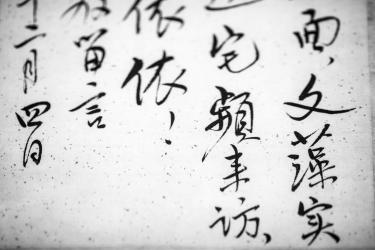 面，文藻实
宅頻来访、
依依！
留言
十二月四日